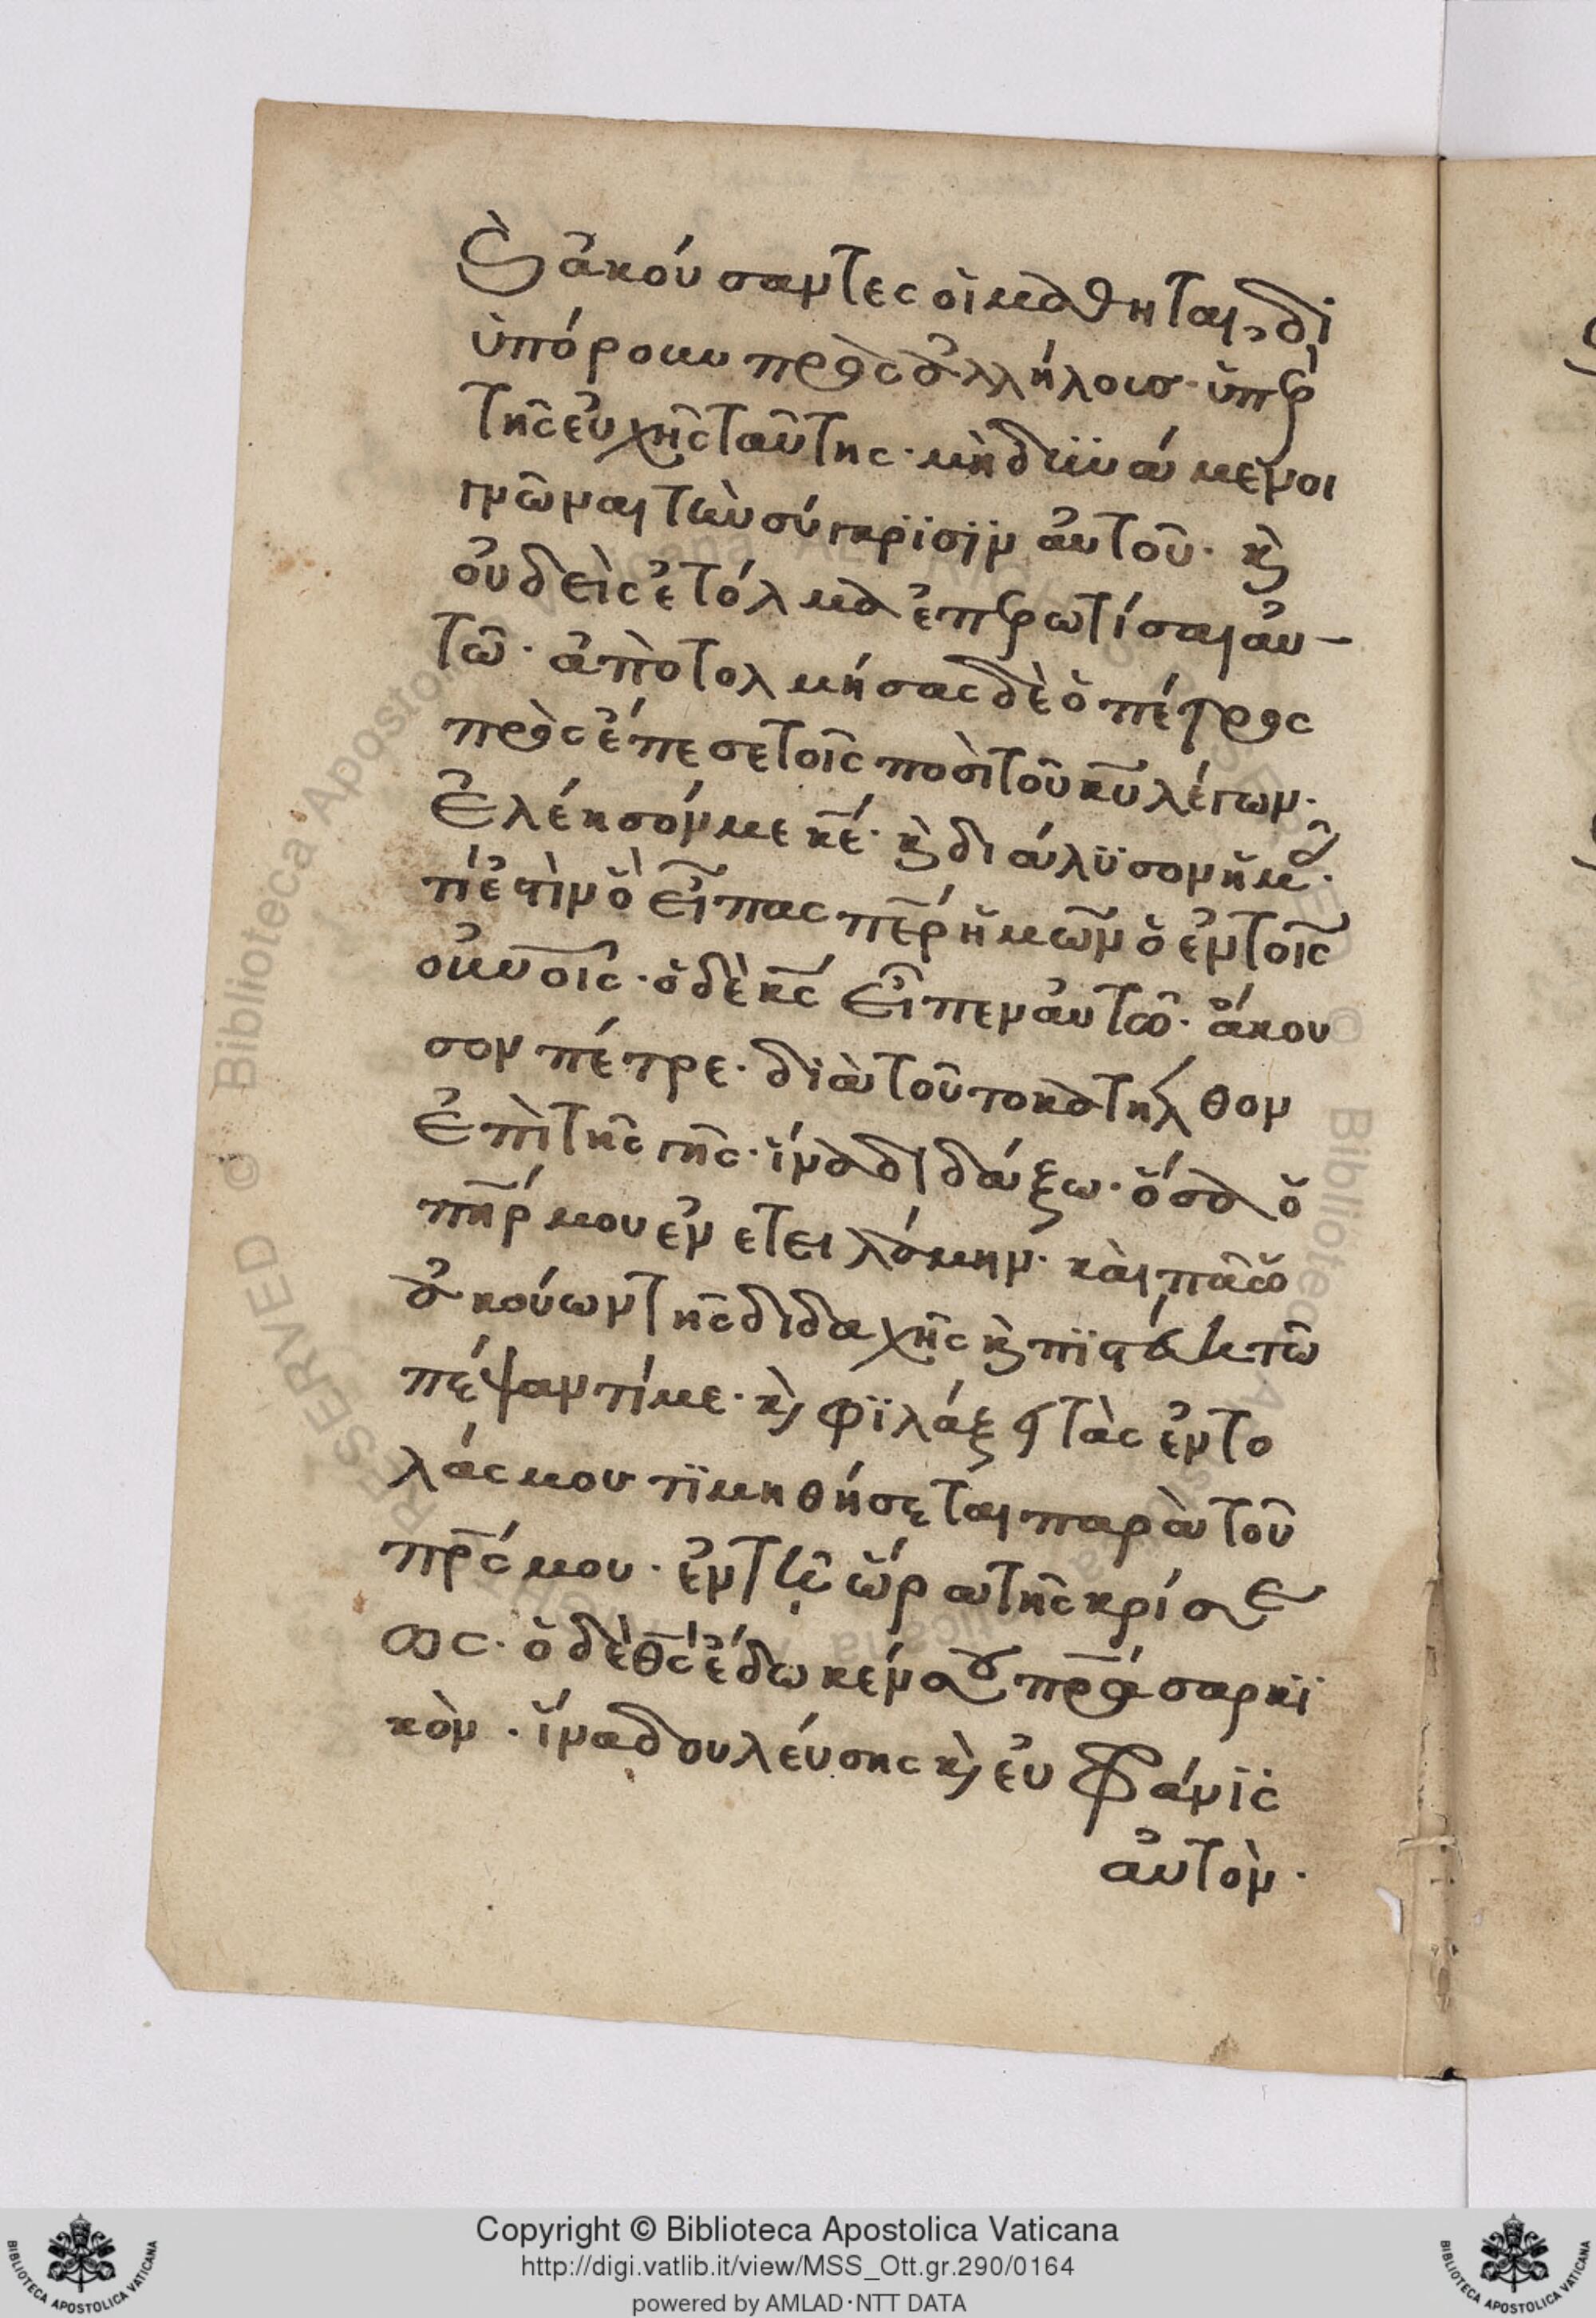 Ἐξακούσαντες οἱ μαθηταὶ, δι
ὑπόρουν πρὸς ἀλλήλοισ· ὑπὲρ
τῆς εὐχῆς ταῦτης· μὴ δϋνάμενοι
γνῶναι τὴν σύγκρϊσϊν ἀυτοῦ· κ̀
οὐδεὶς ἐτόλμα ἐπερωτίσαι ἀυ–
τῶ· ἀπὸτολμήσας δὲ ὁ πέτρος
πρὸς ἔπεσε τοῖς ποσὶ τοῦ κ̅υ̅ λέγων·
Ἐλέησόν με κ̅ε̅· κ̀ διάλϋσον ἡμῖν·
τί ἐστὶν ὃ εἶπας π̅ε̅ρ̅ ἡμῶν ὁ ἐν τοῖς
ο̅υ̅ν̅ο̅ι̅ς̅· ὁ δὲ κ̅ς̅ εἶπεν ἀυτῶ· ἄκου
σον πέτρε· διὰ τοῦτο κατῆλθον
Ἐπὶ τῆς γῆς· ἵνα διδάξω· ὅσα ὁ
π̅η̅ρ̅ μου ἐνετειλάμην· καὶ πᾶσ ὁ
ἀκούων τῆς διδαχῆς κ̀ πϊστεύει τῶ
πέψαντί με· κ̀ φϊλάξει τὰς ἐντο
λάς μου τϊμηθήσεται παρὰ τοῦ
π̅ρ̅ς̅ μου· ἐν τῆ ὥρα τῆς κρίσε
ως· ὁ δὲ θ̅ς̅ ἔδωκέν σου π̅ρ̅α̅ σαρκϊ
κὸν· ἵνα δουλέυσης κ̀ ἐυφράνϊς
ἀυτὸν·
Copyright © Biblioteca Apostolica Vaticana
http://digi.vatlib.it/view/MSS_Ott.gr.290/0164
powered by AMLAD·NTT DATA